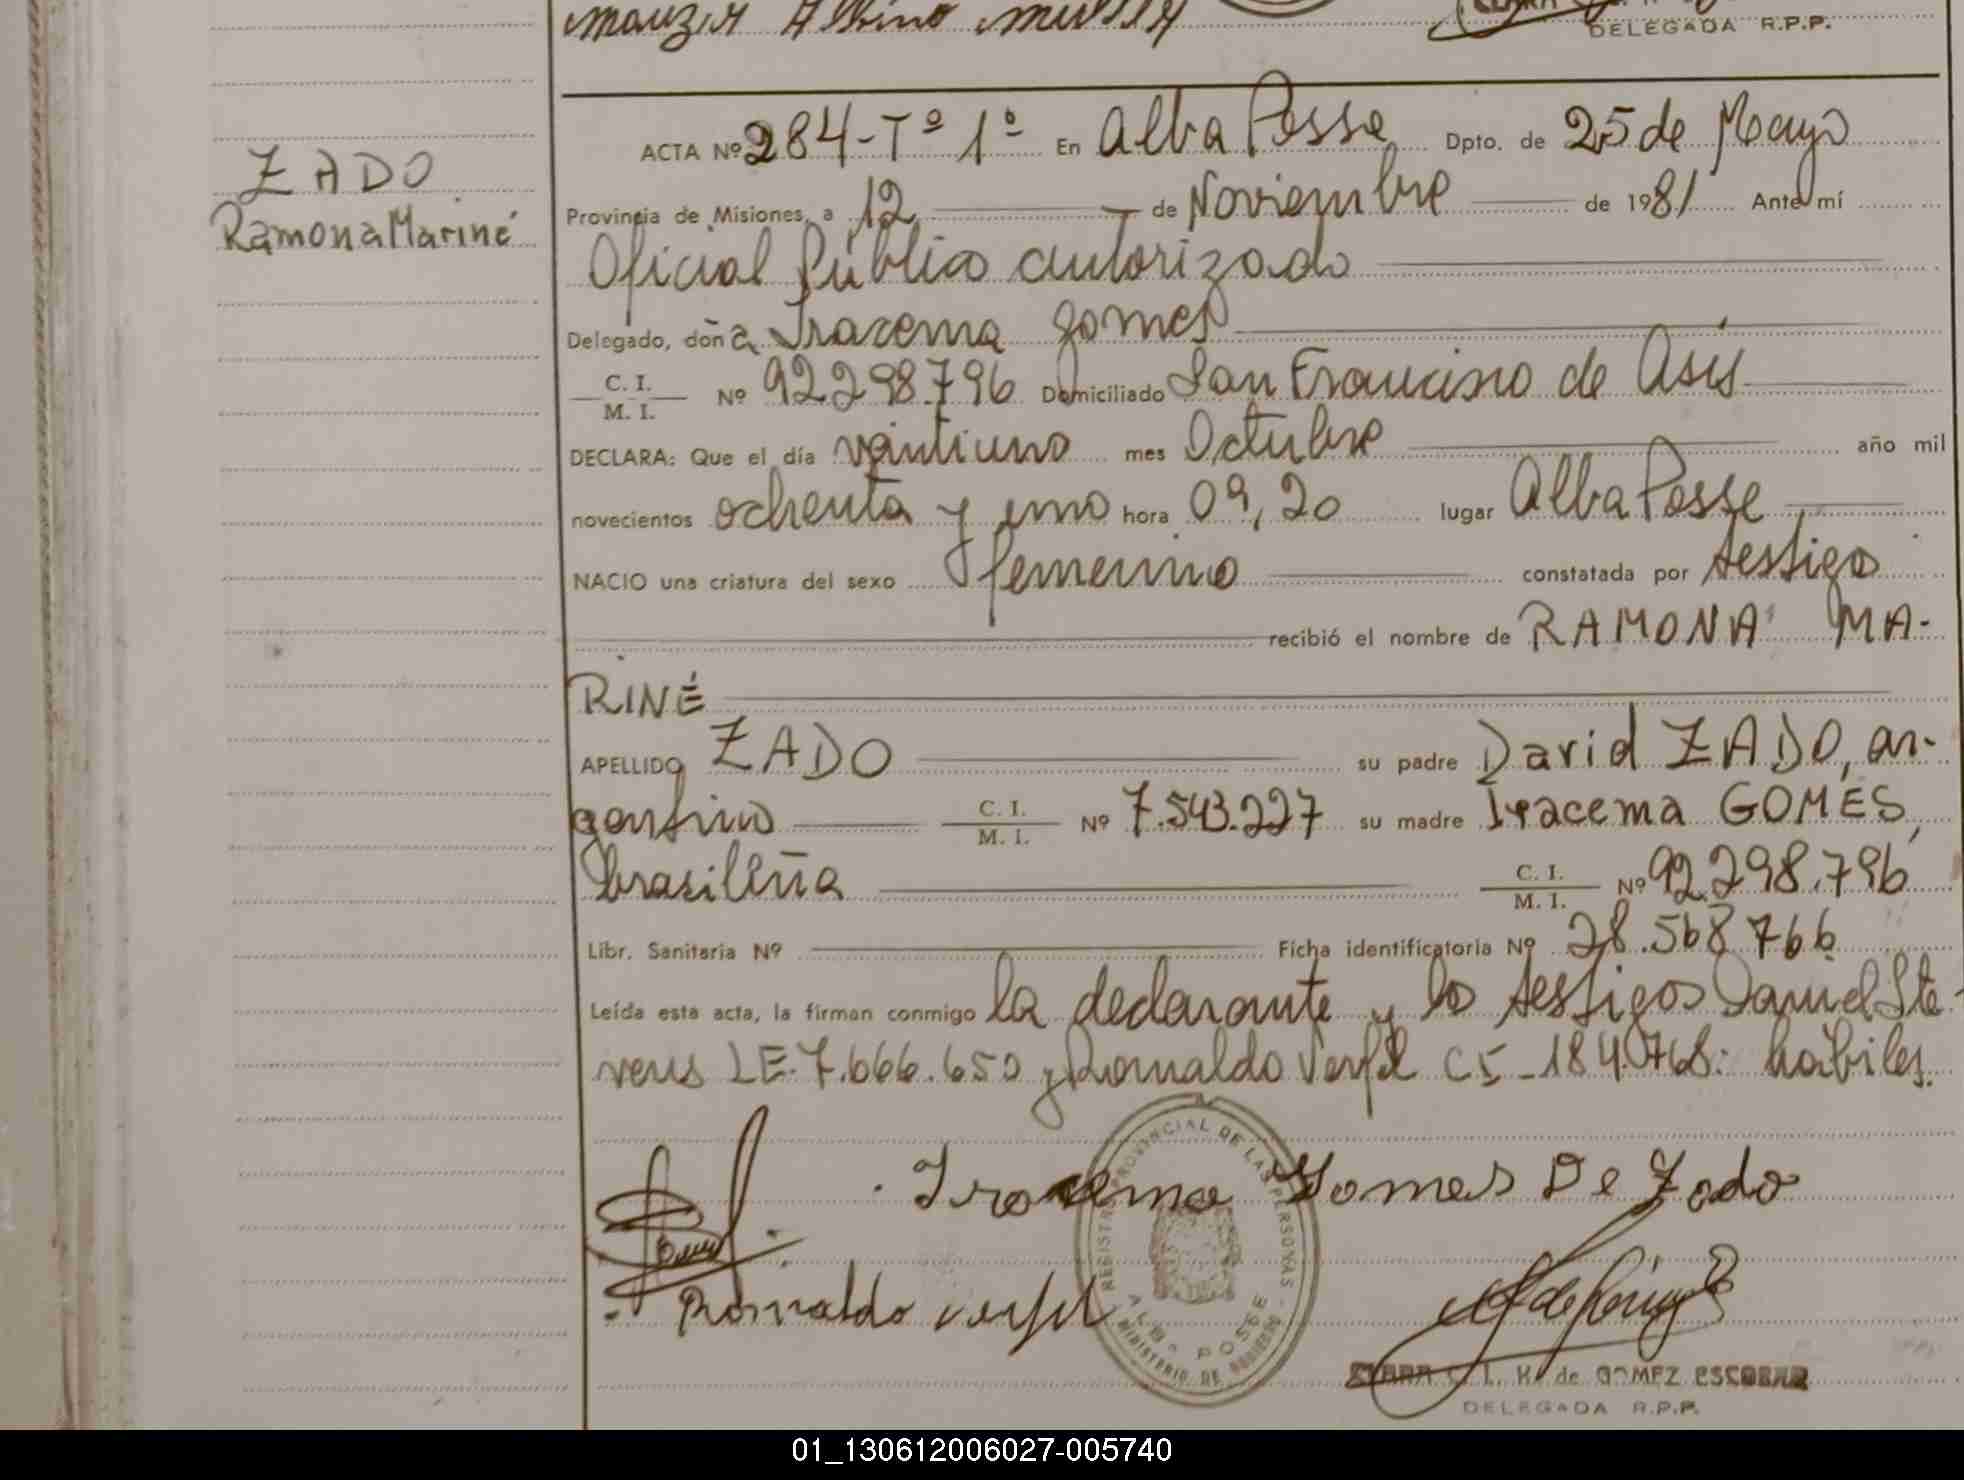 DELEGADA R.P.P.
ACTA Nº 284-Tº 1º En Alba Posse Dpto. de 25 de Mayo
ZADO
Ramona Mariné
Provincia de Misiones, a 12 de Noviembre de 1981 Ante mí
Oficial Público autorizado
Delegado, doña Iracema Gomes
C. I.
M. I. Nº 92.298.796 Domiciliado San Francisco de Asís
DECLARA: Que el día veintiuno mes Octubre año mil
novecientos ochenta y uno hora 09,20 lugar Alba Posse
NACIO una criatura del sexo femenino constatada por testigo
recibió el nombre de RAMONA MA-
RINÉ
APELLIDO ZADO su padre David ZADO, ar-
gentino C. I. M. I. Nº 7.543.227 su madre Iracema GOMES,
brasileña C. I. M. I. Nº 92.298.796
Libr. Sanitaria Nº Ficha identificatoria Nº 28.568766
Leída esta acta, la firman conmigo la declarante y los testigos Daniel Ste-
vens LE.7.666.650 y Romaldo Verfel CI_184.0768: hábiles.
Iracema Gomes De Zado
Romaldo Verfel
REGISTRO PROVINCIAL DE LAS PERSONAS
ALBA POSSE
MINISTERIO DE GOBIERNO
CLARA C. I. K. de GOMEZ ESCOBAR
DELEGADA R.P.P.
01_130612006027-005740